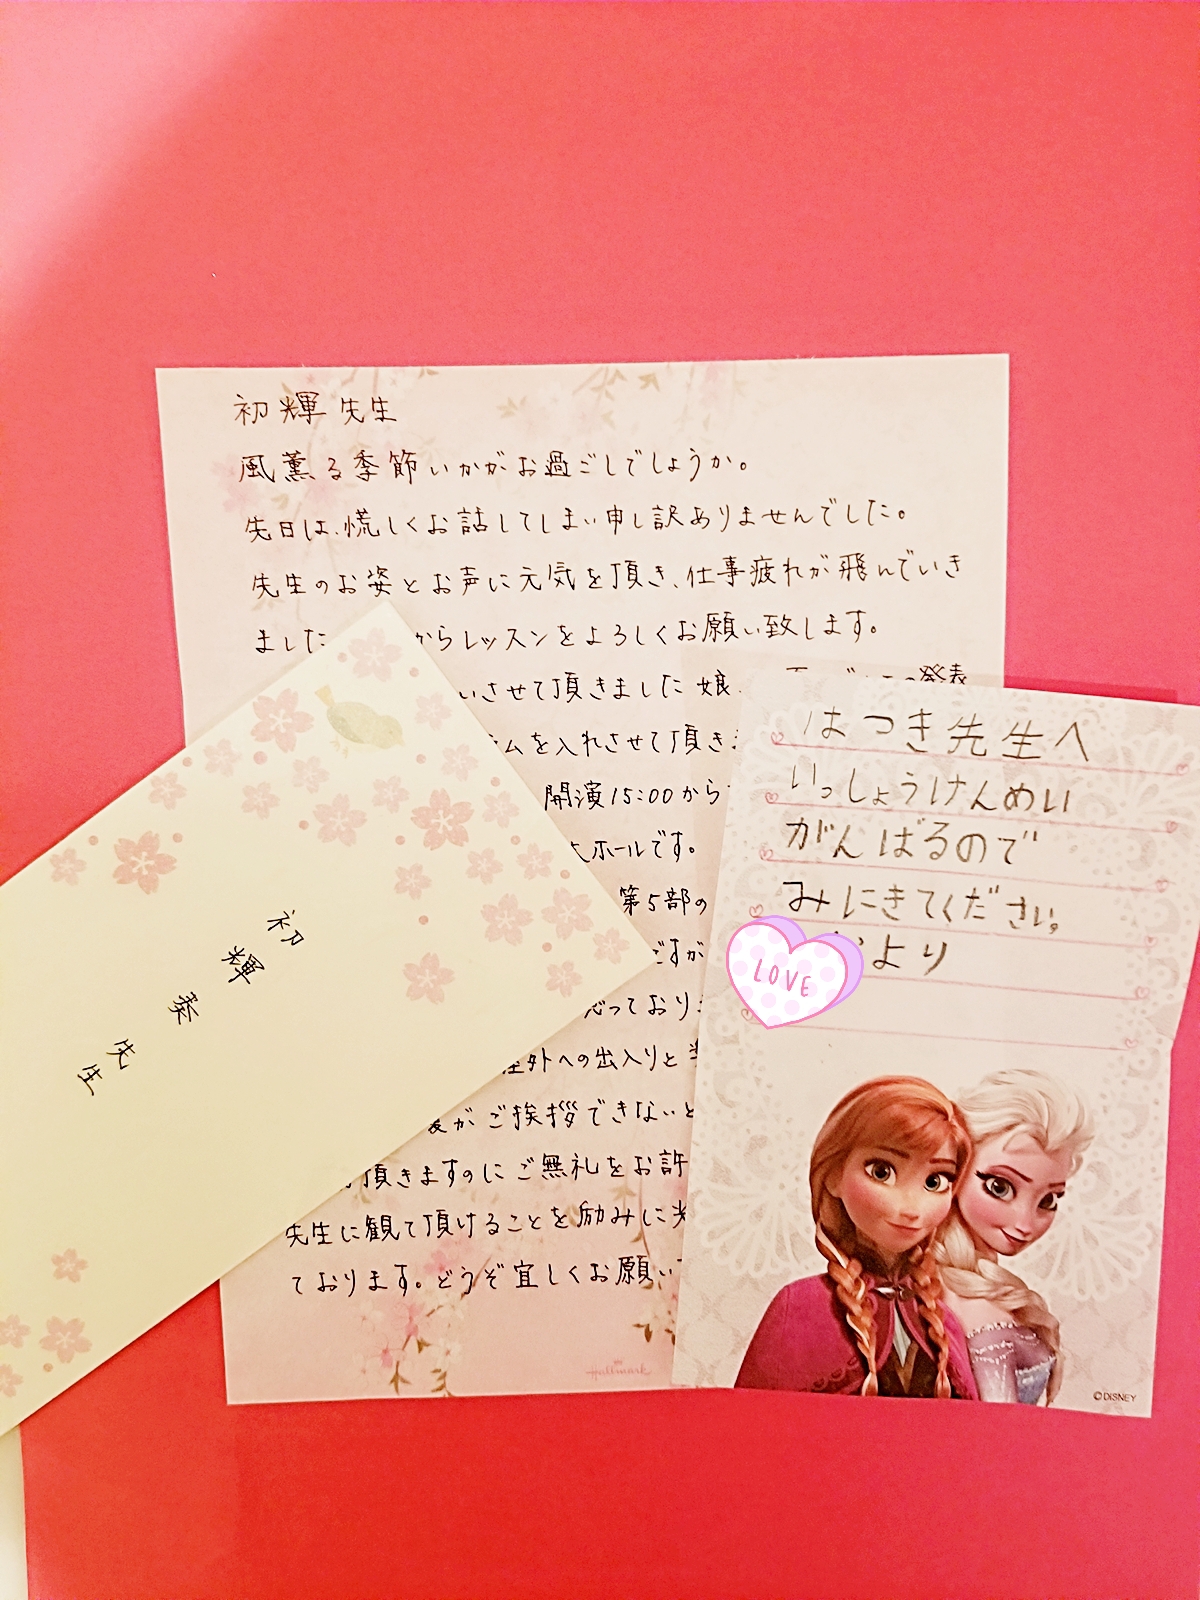 初輝先生
風薫る季節いかがお過ごしでしょうか。
先日は、慌しくお話してしまい申し訳ありませんでした。
先生のお姿とお声に元気を頂き、仕事疲れが飛んでいき
ました
からレッスンをよろしくお願い致します。
いさせて頂きました娘
の発表
ムを入れさせて頂き
開演15:00から
大ホールです。
第5部の
ですが
思っており
座外への出入りと
がご挨拶できないと
頂きますのにご無礼をお許
先生に観て頂けることを励みに
ております。どうぞ宜しくお願い
Hallmark
初輝葵先生
はつき先生へ
いっしょうけんめい
がんばるので
みにきてください。
より
LOVE
©DISNEY